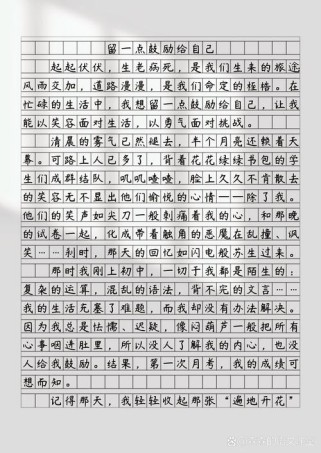 留一点鼓励给自己
起起伏伏，生老病死，是我们生来的旅途
风雨交加，道路漫漫，是我们命定的桎梏。在
忙碌的生活中，我想留一点鼓励给自己，让我
能以笑容面对生活，以勇气面对挑战。
清晨的雾气已然褪去，半个月亮还赖着天
幕。可路上人已多了，背着花花绿绿书包的学
生们成群结队，叽叽喳喳，脸上久久不肯散去
的笑容无不显出他们愉悦的心情——除了我。
他们的笑声如尖刀一般刺痛着我的心，和那晚
的试卷一起，化成带着触角的恶魔在乱撞、讽
笑……刹时，那天的回忆如闪电般苏生过来。
那时我刚上初中，一切于我都是陌生的：
复杂的运算，混乱的语法，背不完的文言……
我的生活充塞了难题，而我却没有办法解决。
因为我总是怯懦、迟疑，像闷葫芦一般把所有
心事咽进肚里，所以没人了解我的内心，也没
人给我鼓励。结果，第一次月考，我的成绩可
想而知。
记得那天，我轻轻收起那张“遍地开花”